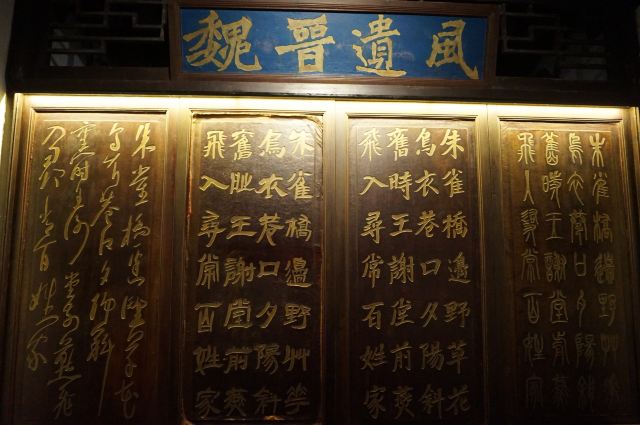 魏晉遺風
朱雀橋邊野草花
烏衣巷口夕陽斜
舊時王謝堂前燕
飛入尋常百姓家
朱雀橋邊野草花
烏衣巷口夕陽斜
舊時王謝堂前燕
飛入尋常百姓家
朱雀橋邊野艸華
烏衣巷口夕陽斜
舊時王謝堂前燕
飛入尋常百姓家
朱雀橋邊野草花
烏衣巷口夕陽斜
舊時王謝堂前燕飛
入尋常百姓家